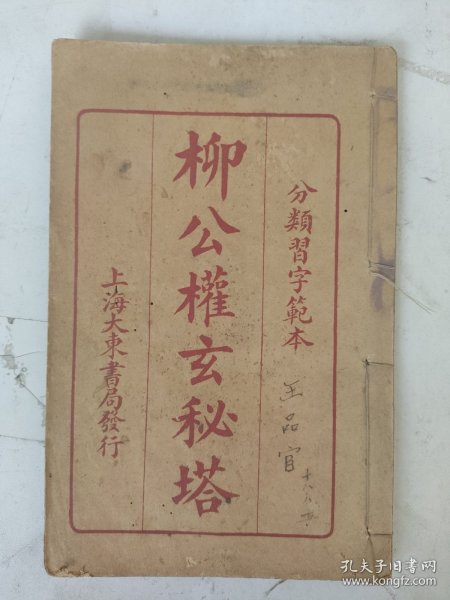 分類習字範本
柳公權玄秘塔
上海大東書局發行
王品官
孔夫子旧书网
www.kongfz.com